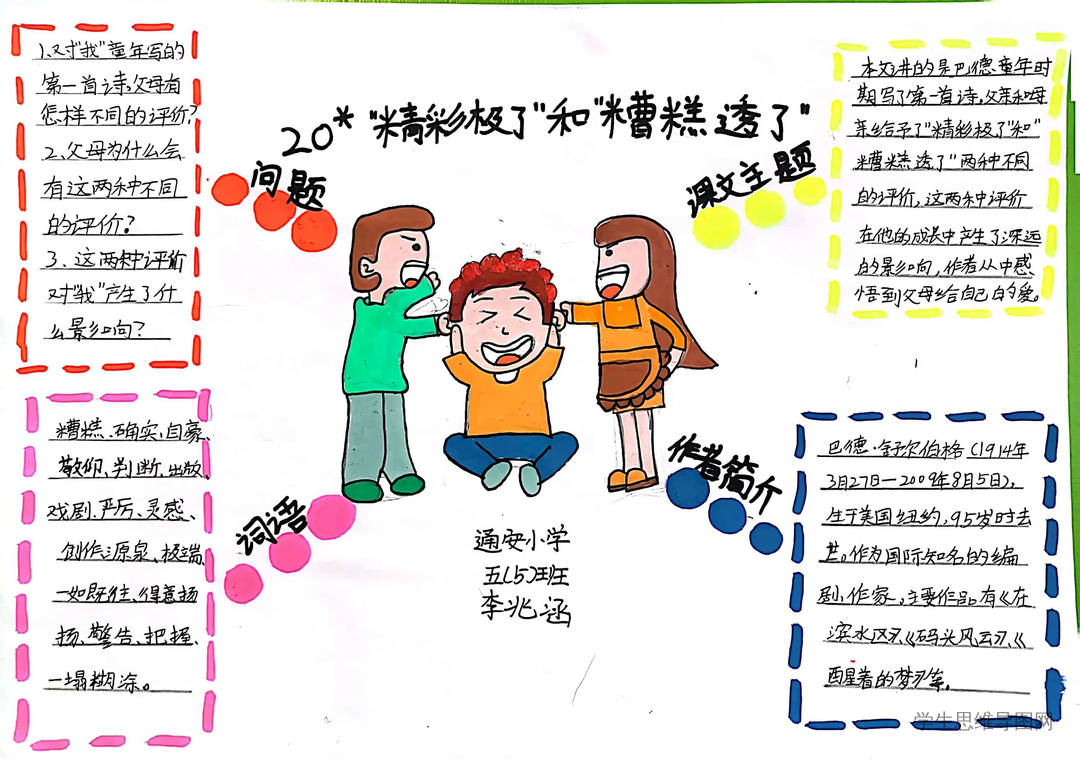 20* "精彩极了"和"糟糕透了"
问题
1、对"我"童年写的
第一首诗,父母有
怎样不同的评价?
2、父母为什么会
有这两种不同
的评价?
3、这两种评价
对"我"产生了什
么影响?
课文主题
本文讲的是巴德童年时
期写了第一首诗,父亲和母
亲给予了"精彩极了"和"
糟糕透了"两种不同
的评价,这两种评价
在他的成长中产生了深远
的影响,作者从中感
悟到父母给自己的爱。
词语
糟糕、确实、自豪、
敬仰、判断、出版、
戏剧、严厉、灵感、
创作源泉、极端、
一如既往、得意扬
扬、警告、把握、
一塌糊涂。
作者简介
巴德·舒尔伯格(1914年
3月27日—2009年8月5日),
生于美国纽约,95岁时去
世。作为国际知名的编
剧、作家。主要作品有《在
滨水区》、《码头风云》、《
醒着的梦》等。
通安小学
五(5)班
李兆涵
学生思维导图网